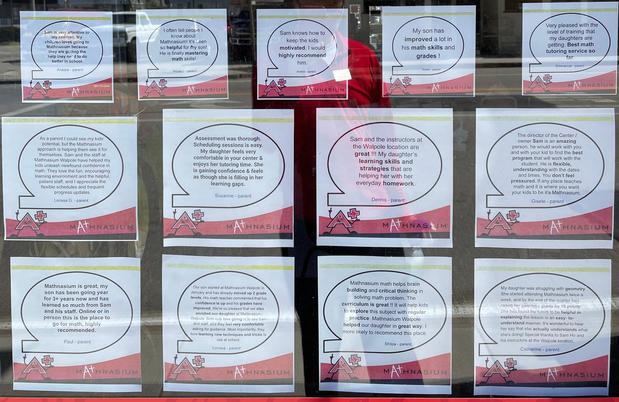 Sam is very attentive to
my
children loves going to
Mathnasium because
they are getting the
help they need to do
better in school.
- parent
MATHNASIUM
I often tell people I
know about
Mathnasium it's been
so helpful for my son!
He is finally mastering
math skills!
- parent
MATHNASIUM
Sam knows how to
keep the kids
motivated. I would
highly recommend
him.
- parent
MATHNASIUM
My son has
improved a lot in
his math skills and
grades !
- parent
MATHNASIUM
Very pleased with the
level of training that
my daughters are
getting. Best math
tutoring service so
far
- parent
MATHNASIUM
As a parent I could see my kids'
potential, but the Mathnasium
approach is helping them see it for
themselves. Sam and the staff at
Mathnasium Walpole have helped my
kids unleash newfound confidence in
math. They love the fun, encouraging
learning environment and the helpful,
patient staff, and I appreciate the
flexible schedules and frequent
progress updates.
Larissa G. - parent
MATHNASIUM
Assessment was thorough.
Scheduling sessions is easy.
My daughter feels very
comfortable in your center &
enjoys her tutoring time. She
is gaining confidence & feels
as though she is filling in her
learning gaps.
Suzanne - parent
MATHNASIUM
Sam and the instructors
at the Walpole location are
great !!! My daughter's
learning skills and
strategies that are
helping her with her
everyday homework.
Dennis - parent
MATHNASIUM
The director of the Center /
owner Sam is an amazing
person, he would work with you
and with your kid to find the best
program that will work with the
student. He is flexible,
understanding with the dates
and times. You don't feel
pressured. If any place teaches
math and it is where you want
your kids to be it's Mathnasium.
Gisele - parent
MATHNASIUM
Mathnasium is great, my
son has been going year
for 3+ years now and has
learned so much from Sam
and his staff. Online or in
person this is the place to
go for math, highly
recommended.
Paul - parent
MATHNASIUM
Our son started at Mathnasium Walpole in
January and has already moved up 2 grade
levels. His math teacher commented that his
confidence is up and his grades have
improved. We're so pleased that we also
enrolled our daughter at Mathnasium
Walpole. Both kids love going in to see Sam
and staff, and they feel very comfortable
asking for guidance. Most importantly, they
love learning new techniques and tricks to
use at school!
- parent
MATHNASIUM
Mathnasium math helps brain
building and critical thinking in
solving math problem. The
curriculum is great!! It will help kids
to explore this subject with regular
practice. Mathnasium Walpole
helped our daughter in great way. I
more likely to recommend this place.
Shilpa - parent
MATHNASIUM
My daughter was struggling with geometry.
She started attending Mathnasium twice a
week, and by the end of the quarter had
She has found the tutors to be helpful in
explaining the lesson in an easy-to-
understand manner. It's wonderful to hear
her say that she actually understands what
she's doing! Special thanks to Sam Ho and
my instructors at the Walpole location.
Catherine - parent
MATHNASIUM